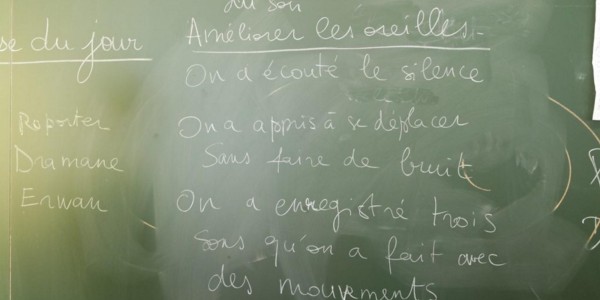 du son
se du jour
Améliorer les oreilles-
On a écouté le silence
Reporter
Dramane
Erwan
On a appris à se déplacer
Sans faire de bruit
On a enregistré trois
sons qu'on a fait avec
des mouvements